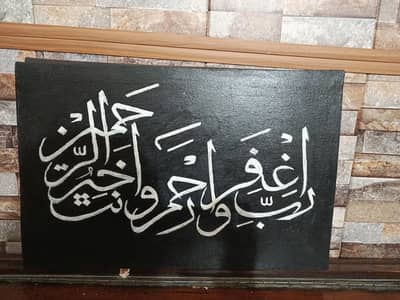 ربِّ اغْفِر وارحم وانت خير الرّٰحمين